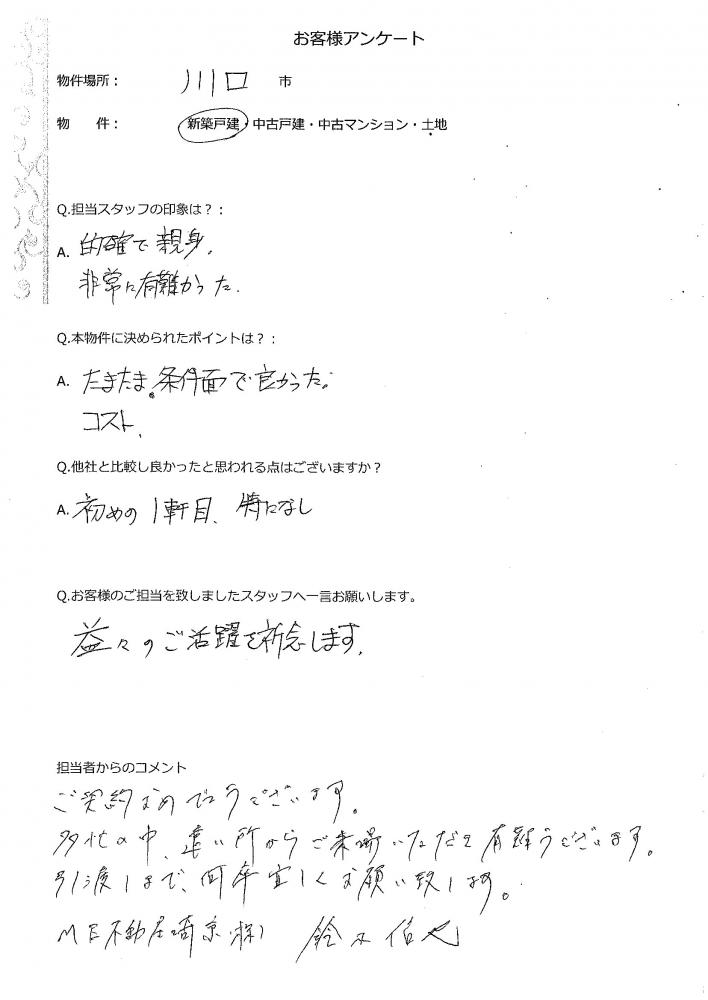 お客様アンケート
物件場所： 川口 市
物　　件： 新築戸建・中古戸建・中古マンション・土地
Q.担当スタッフの印象は？：
A. 的確で親身、
非常に有難かった.
Q.本物件に決められたポイントは？：
A. たまたま。条件面で良かった。
コスト、
Q.他社と比較し良かったと思われる点はございますか？
A. 初めの1軒目、特になし
Q.お客様のご担当を致しましたスタッフへ一言お願いします。
益々のご活躍を祈念します。
担当者からのコメント
ご契約おめでとうございます。
多忙の中、遠い所からご来場いただき有難うございます。
引渡しまで、何卒宜しくお願い致します。
ME不動産埼京(株) 鈴木